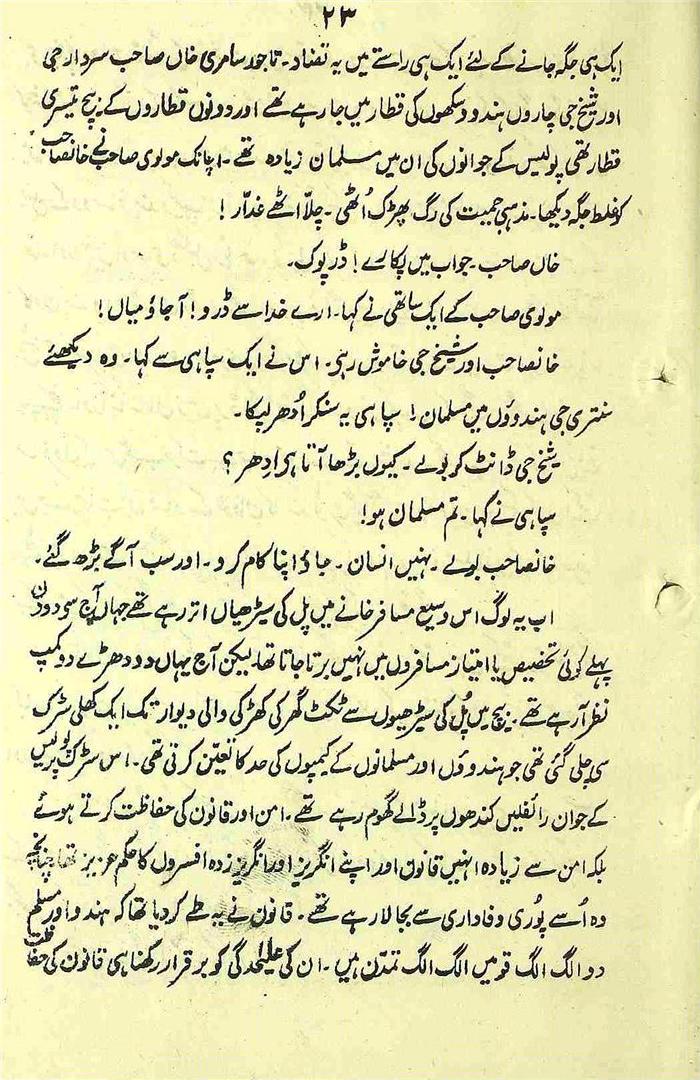 ۲۳
ایک ہی جگہ جانے کے لئے ایک ہی راستے میں یہ تضاد۔ تاجور سامری خاں صاحب سردار جی
اور شیخ جی چاروں ہندو و سکھوں کی قطار میں جا رہے تھے اور دونوں قطاروں کے بیچ تیسری
قطار تھی پولیس کے جوانوں کی ان میں مسلمان زیادہ تھے۔ اچانک مولوی صاحب نے خانصاحب
کو غلط جگہ دیکھا۔ مذہبی حمیت کی رگ پھڑک اُٹھی۔ چلّا اٹھے غدّار!
خاں صاحب۔ جواب میں پکارے! ڈرپوک۔
مولوی صاحب کے ایک ساتھی نے کہا۔ ارے خدا سے ڈرو! آجاؤ میاں!
خانصاحب اور شیخ جی خاموش رہی۔ اس نے ایک سپاہی سے کہا۔ وہ دیکھئے
سنتری جی ہندوؤں میں مسلمان! سپاہی یہ سنکر اُدھر لپکا۔
شیخ جی ڈانٹ کو بولے۔ کیوں بڑھا آتا ہے ادھر؟
سپاہی نے کہا۔ تم مسلمان ہو!
خانصاحب بولے۔ نہیں انسان۔ جاؤ اپنا کام کرو۔ اور سب آگے بڑھ گئے۔
اب یہ لوگ اس وسیع مسافر خانے میں پل کی سیڑھیاں اتر رہے تھے جہاں آج سی دو دن
پہلے کوئی تخصیص یا امتیاز مسافروں میں نہیں برتا جاتا تھا۔ لیکن آج یہاں دو دھڑے دو کمپ
نظر آ رہے تھے۔ بیچ میں پُل کی سیڑھیوں سے ٹکٹ گھر کی کھڑکی والی دیوار تک ایک کھلی سڑک
سی چلی گئی تھی جو ہندوؤں اور مسلمانوں کے کیمپوں کی حد کا تعیّن کرتی تھی۔ اس سڑک پر پولیس
کے جوان رائفلیں کندھوں پر ڈالے گھوم رہے تھے۔ امن اور قانون کی حفاظت کرتے ہوئے
بلکہ امن سے زیادہ انہیں قانون اور اپنے انگریز اور انگریز زدہ افسروں کا حکم عزیز تھا چنانچہ
وہ اُسے پُوری وفاداری سے بجا لا رہے تھے۔ قانون نے یہ طے کر دیا تھا کہ ہندو اور مسلم
دو الگ الگ قومیں الگ الگ تمدّن ہیں۔ ان کی علیحدگی کو برقرار رکھنا ہی قانون کی حفاظت